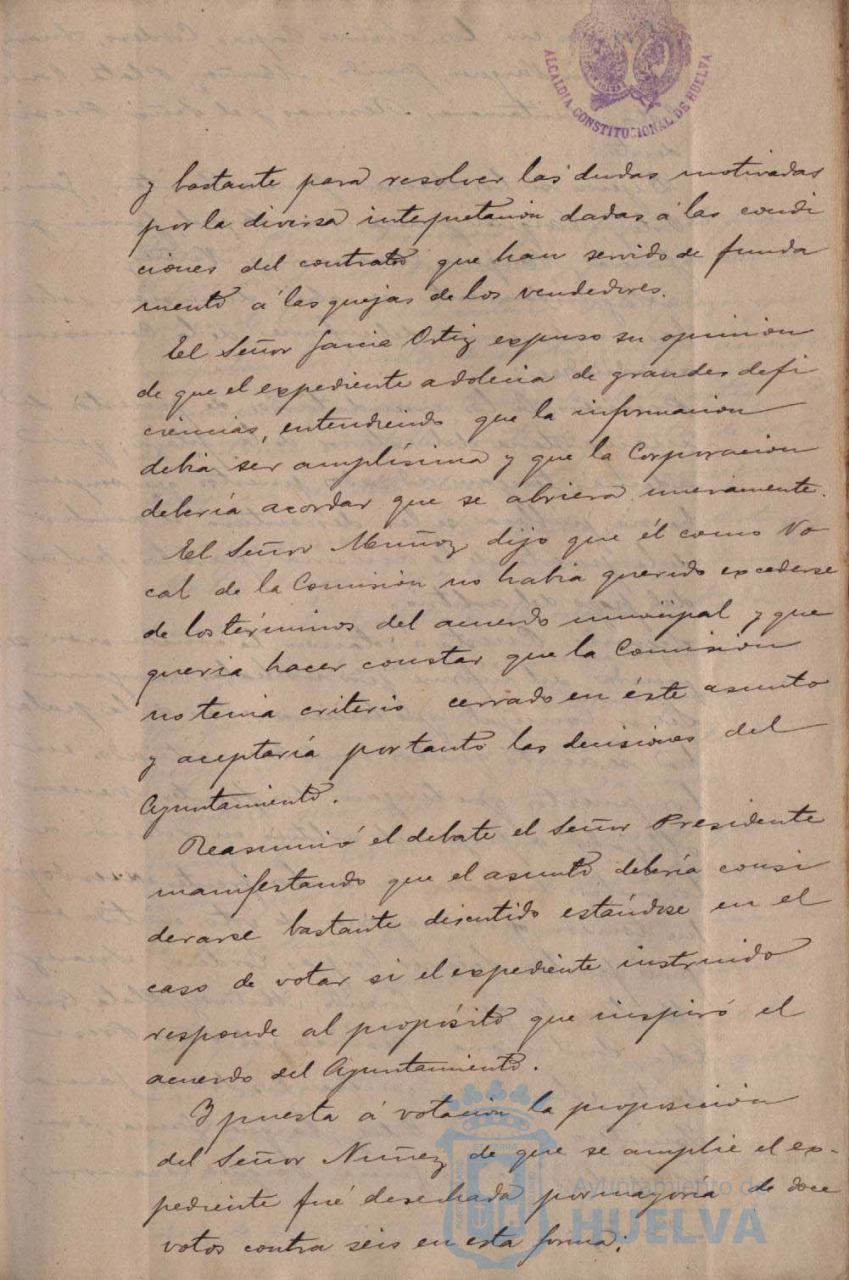 ALCALDIA CONSTITUCIONAL DE HUELVA
y bastante para resolver las dudas motivadas
por la diversa intepretación dadas á las condi
ciones del contrato que han servido de funda
mento á las quejas de los vendedores.
El Señor Garcia Ortiz expuso su opinion
de que el expediente adolecia de grandes defi
ciencias, entendiendo que la informacion
debia ser amplísima y que la Corporacion
debería acordar que se abriera nuevamente.
El Señor Muñoz dijo que él como Vo
cal de la Comisión no habia querido excederse
de los términos del acuerdo municipal y que
queria hacer constar que la Comision
no tenia criterio cerrado en éste asunto
y aceptaría por tanto las decisiones del
Ayuntamiento.
Reasumió el debate el Señor Presidente
manifestando que el asunto debería consi
derarse bastante discutido estándose en el
caso de votar si el expediente instruido
responde al propósito que inspiró el
acuerdo del Ayuntamiento.
Y puesta á votación la proposición
del Señor Nuñez de que se amplie el ex-
pediente fué desechada por mayoría de doce
votos contra seis en esta forma:
Ayuntamiento de
HUELVA